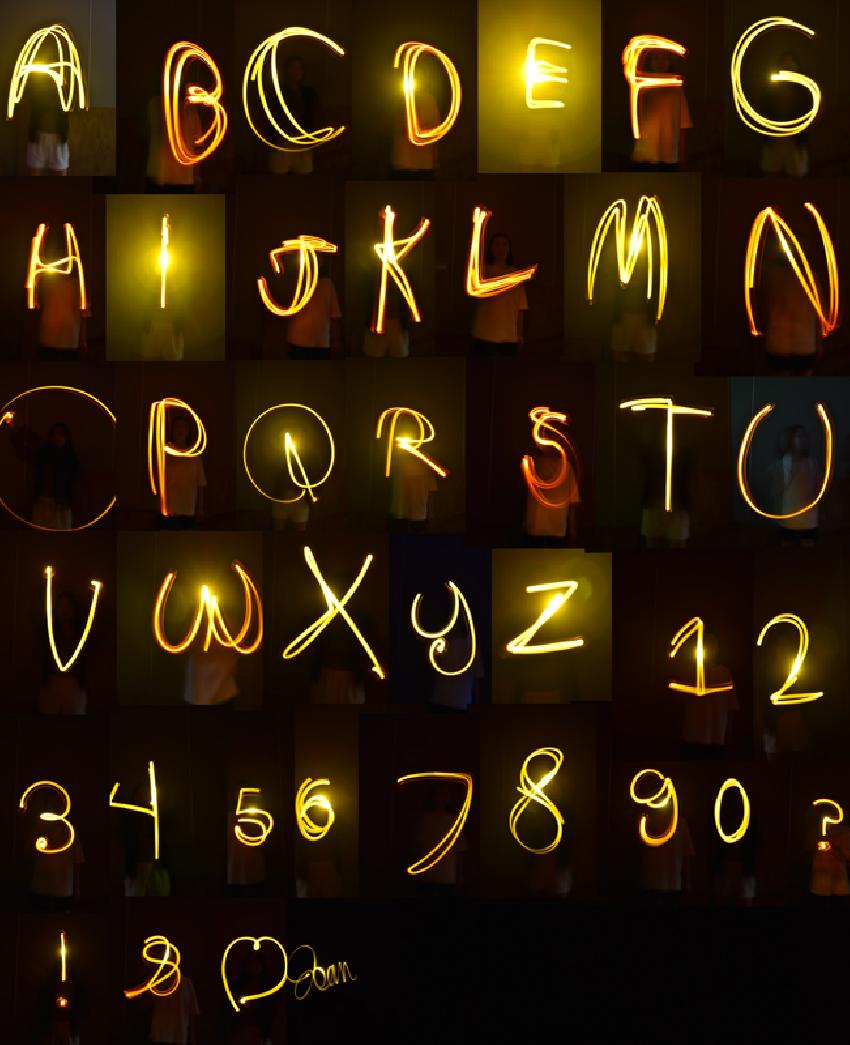 A B C D E F G
H I J K L M N
O P Q R S T U
V W X Y Z 1 2
3 4 5 6 7 8 9 0 ?
! &